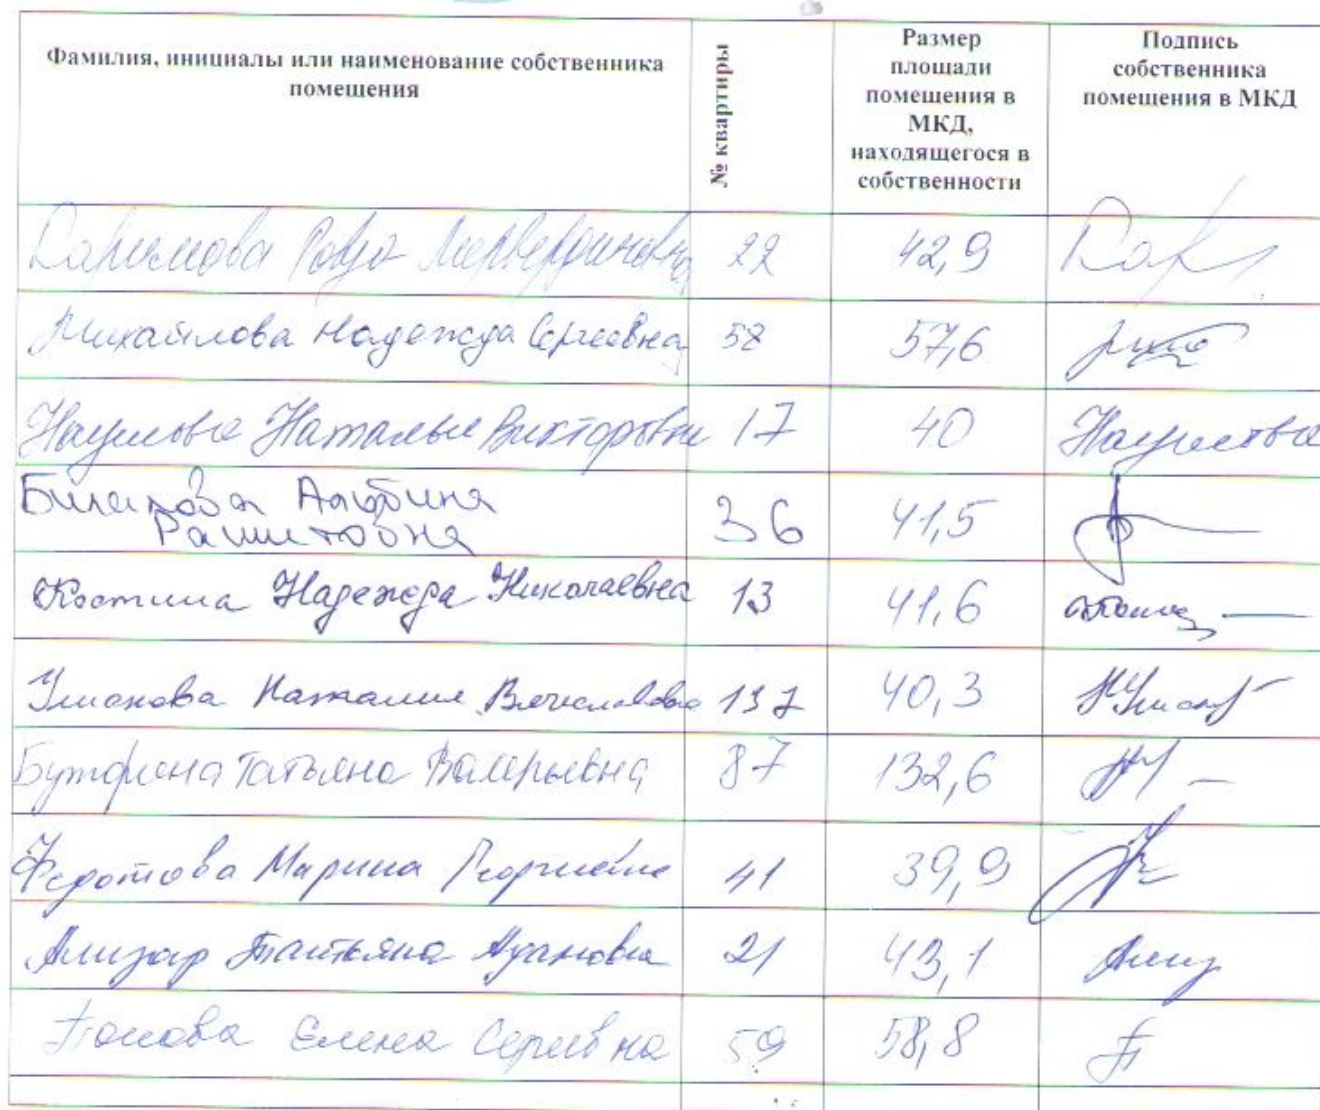 Фамилия, инициалы или наименование собственника
помещения
№ квартиры
Размер
площади
помещения в
МКД,
находящегося в
собственности
Подпись
собственника
помещения в МКД
Каримова 22 42,9
Михайлова Надежда Сергеевна 58 57,6
Наумова Наталья Викторовна 17 40 Наумова
Альбина 36 41,5
Рашитовна
Костина Надежда Николаевна 13 41,6
Усманова Наталия Вячеславовна 137 40,3
Татьяна Валерьевна 87 132,6
Федотова Марина Георгиевна 41 39,9
Татьяна 21 43,1
Елена Сергеевна 59 58,8